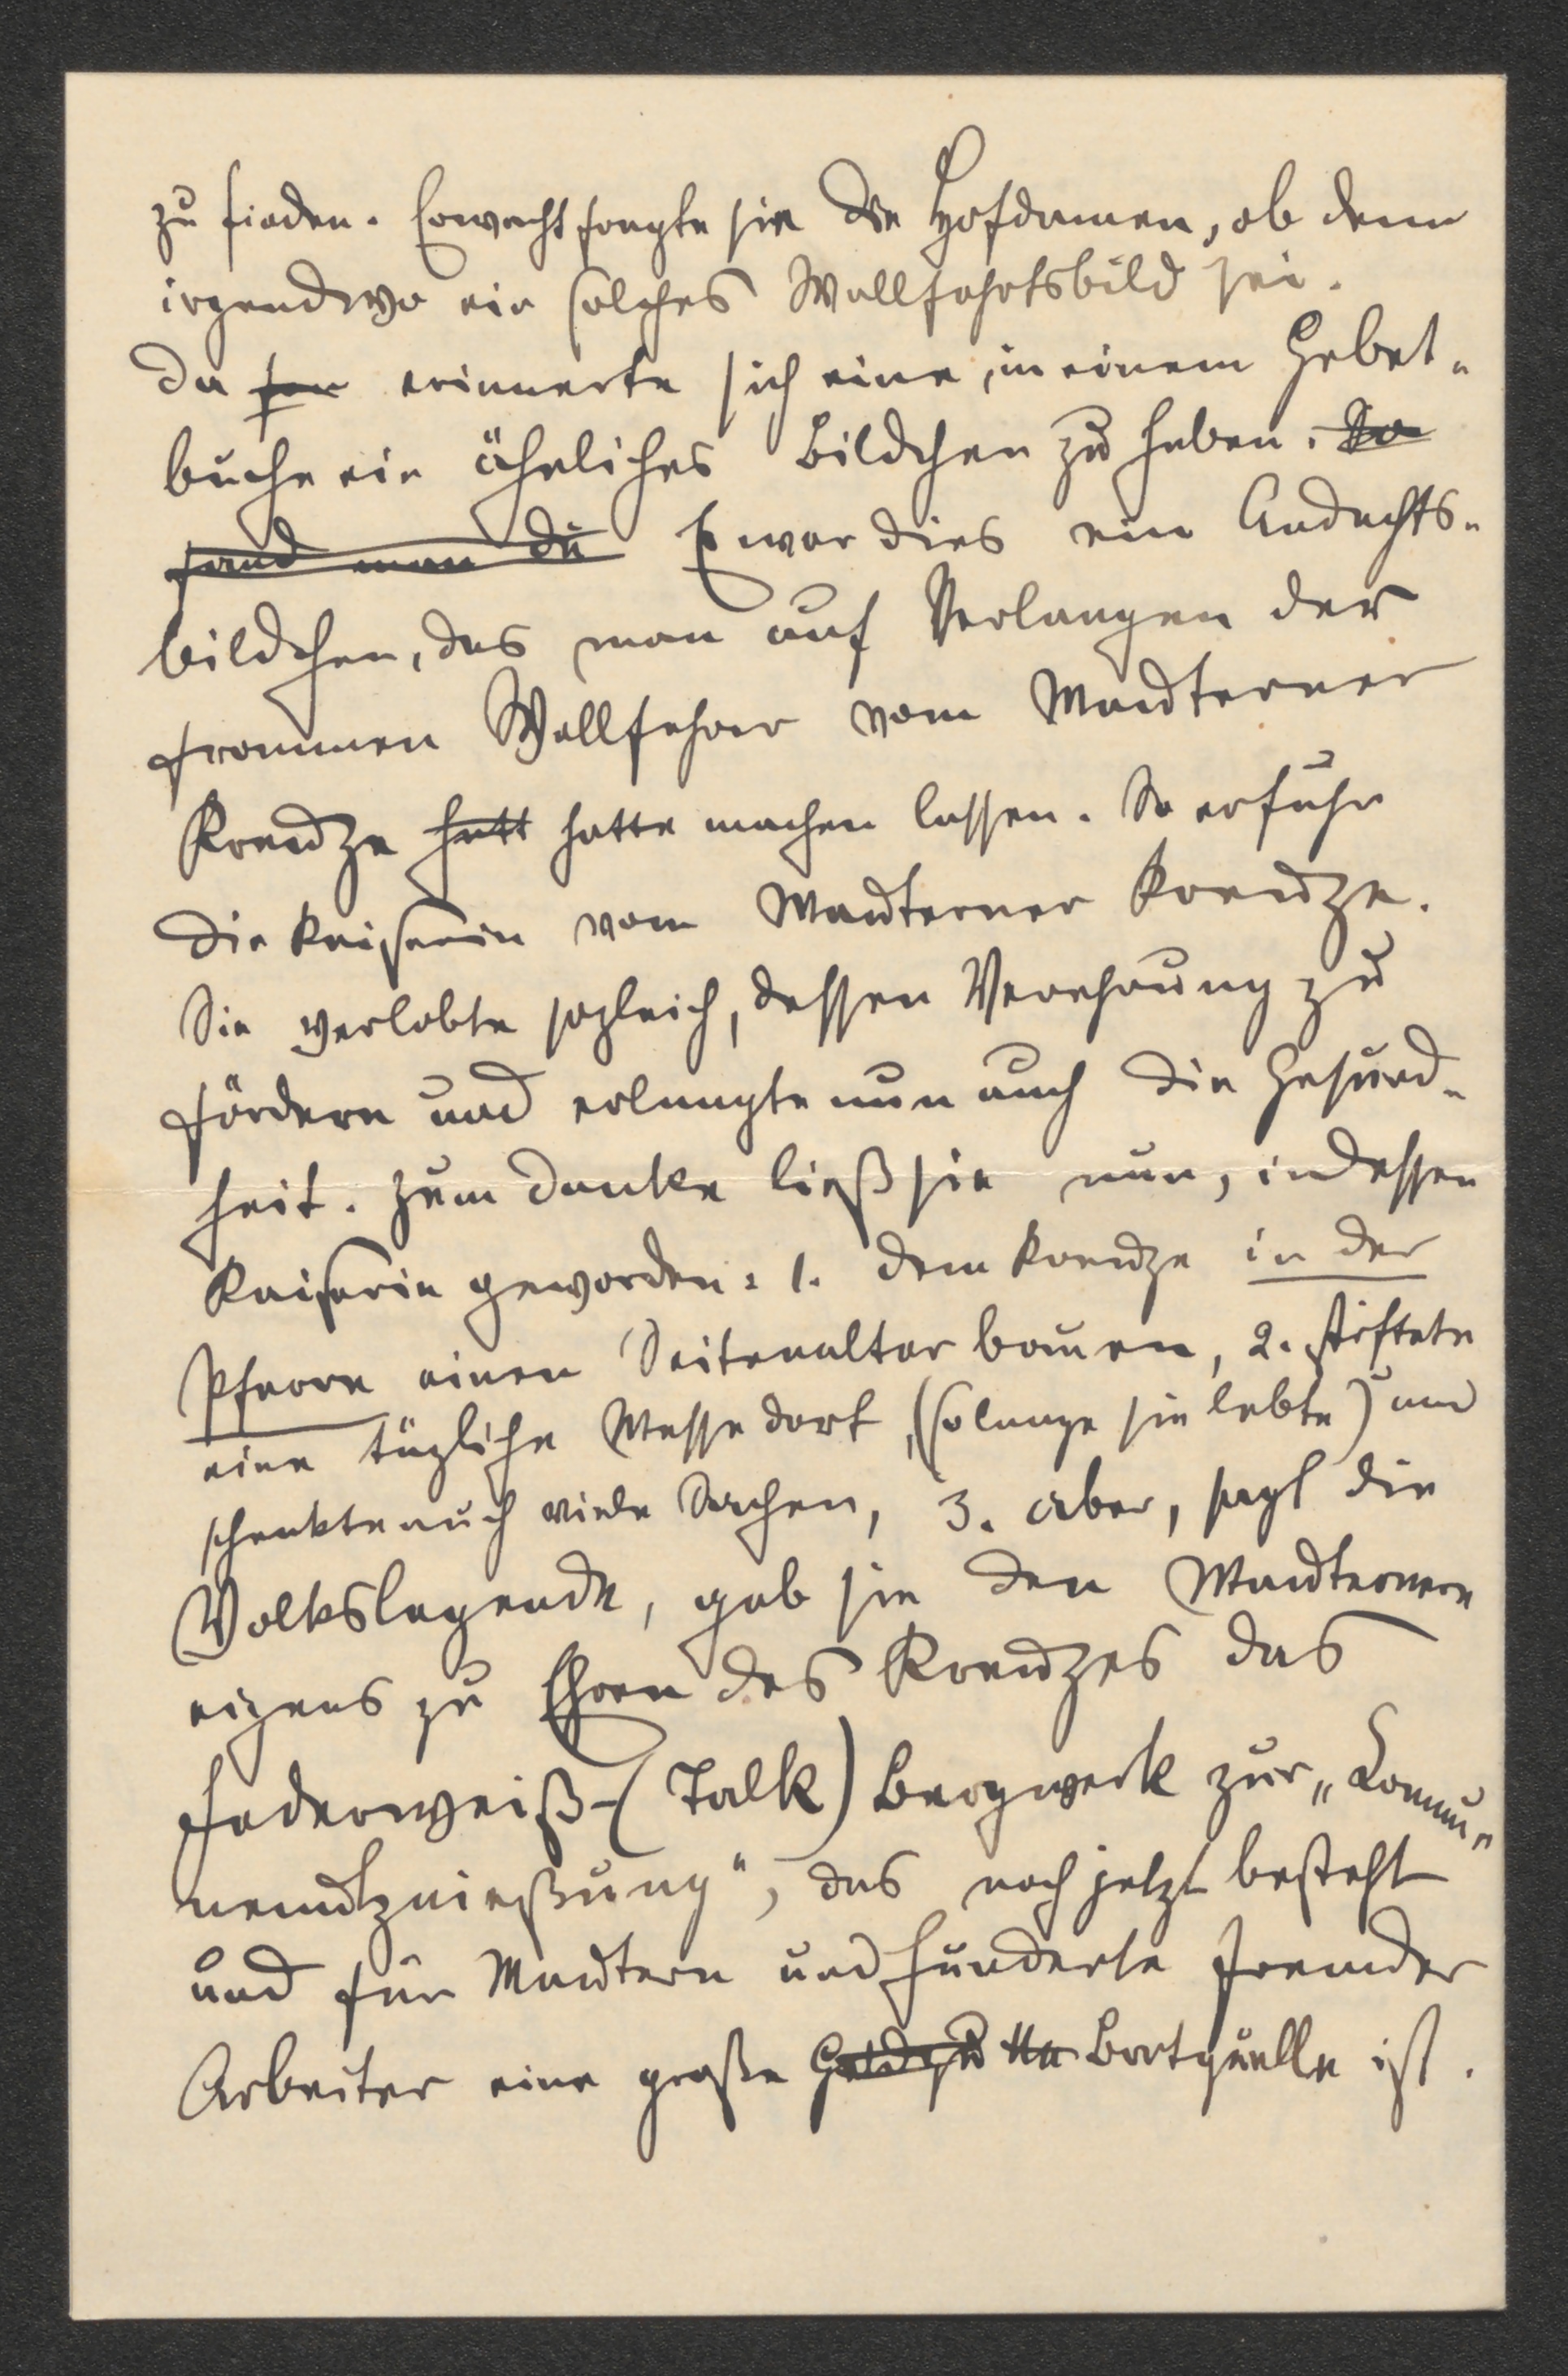 zu finden. Erwacht fragte sie die Hofdamen, ob denn
irgendwo ein solches Wallfahrtsbild sei.
Da fan erinnerte sich eine, in einem Gebet-
buche ein ähnliches Bildchen zu haben. So
fand man du Es war dies ein Andachts-
bildchen, das man auf Verlangen der
frommen Wallfahrer vom Mauterner
Kreuze hatt hatte machen lassen. So erfuhr
die Kaiserin vom Mauterner Kreuze.
Sie verlobte sogleich, dessen Verehrung zu
fördern und erlangte nun auch die Gesund-
heit. Zum Danke ließ sie nun, indessen
Kaiserin geworden: 1. dem Kreuze in der
Pfarre einen Seitenaltar bauen, 2. stiftete
eine tägliche Messe dort, (solange sie lebte) und
schenkte auch viele Sachen, 3. aber, sagt die
Volkslegende, gab sie den Mauternern
eigens zu Ehren des Kreuzes das
Federweiß-(Talk) Bergwerk zur „Commu-
nenutznießung", das noch jetzt besteht
und für Mautern und hunderte fremder
Arbeiter eine große Brotquelle ist.